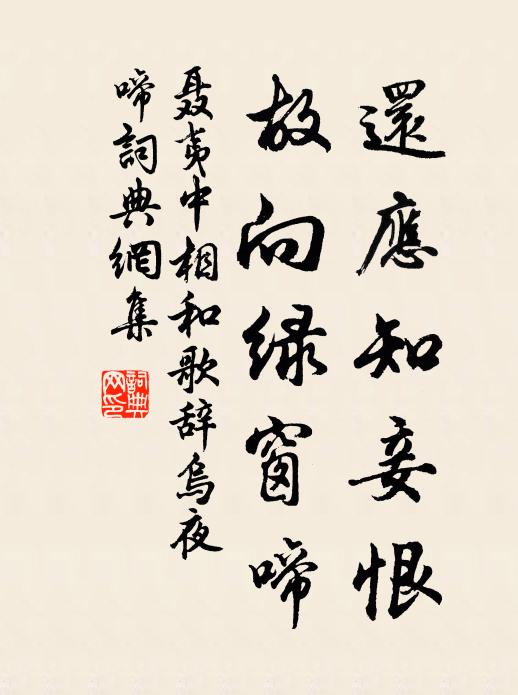 還應知妾恨
故向緑窗啼
聂夷中相和歌辞烏夜
啼詞典網集
詞典
网印